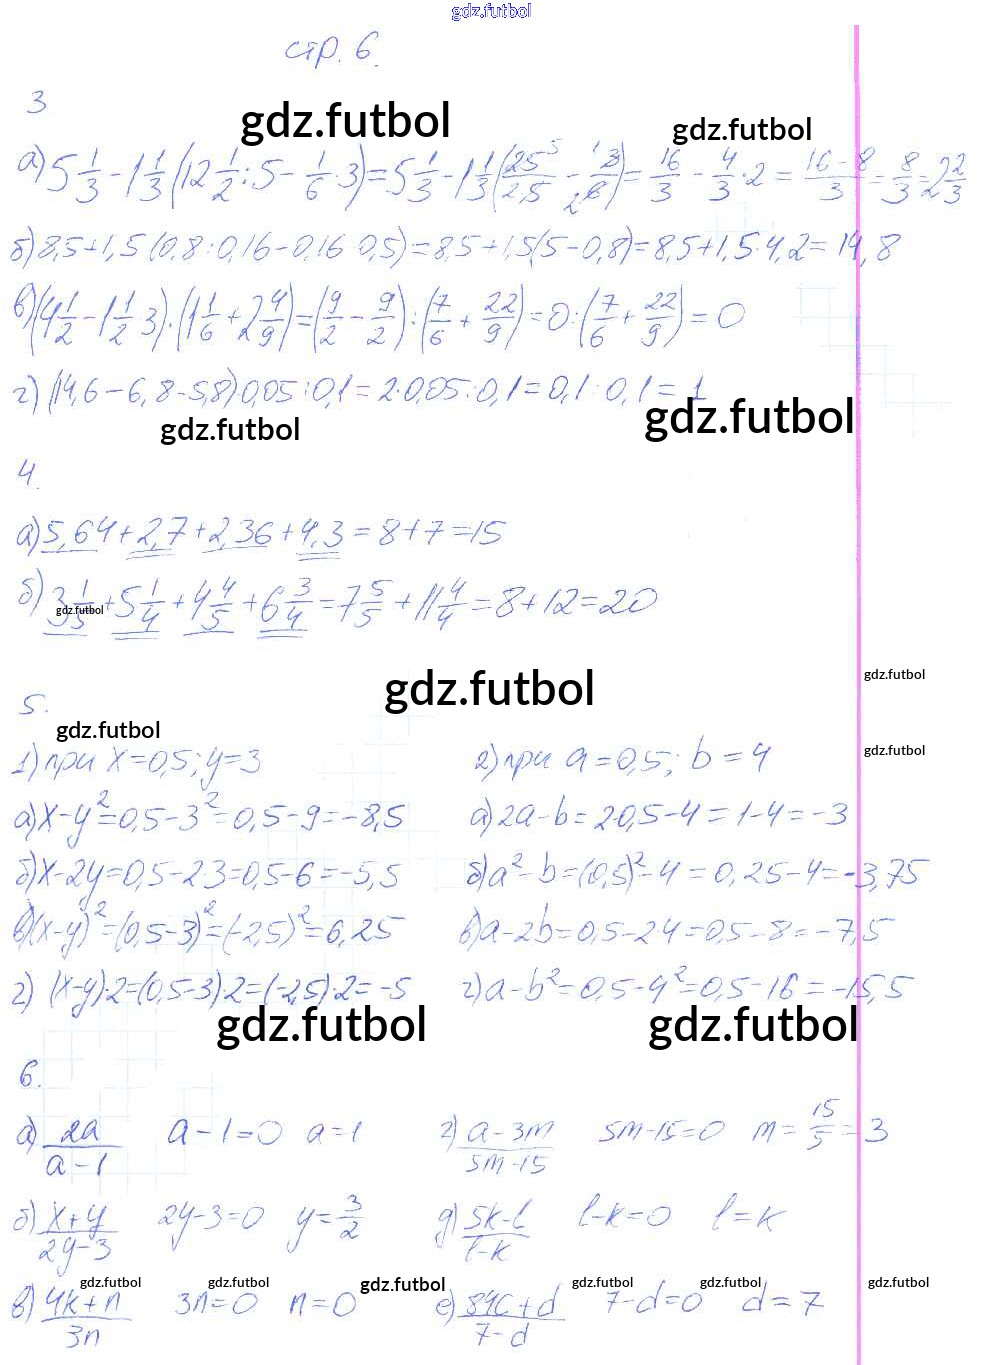 gdz.futbol
стр. 6.
3
gdz.futbol gdz.futbol
а) 5 1/3 - 1 1/3 (12 1/2 : 5 - 1/6 · 3) = 5 1/3 - 1 1/3 (25/(2·5) - 3/6) = 16/3 - 4/3 · 2 = (16-8)/3 = 8/3 = 2 2/3
б) 8,5+1,5 (0,8:0,16-0,16·0,5) = 8,5+1,5(5-0,8) = 8,5+1,5·4,2 = 14,8
в) (4 1/2 - 1 1/2 · 3) · (1 1/6 + 2 4/9) = (9/2 - 9/2) : (7/6 + 22/9) = 0 : (7/6 + 22/9) = 0
г) (14,6-6,8-5,8)·0,05:0,1 = 2·0,05:0,1 = 0,1:0,1 = 1
gdz.futbol gdz.futbol
4.
а) 5,64+2,7+2,36+4,3 = 8+7 = 15
б) 3 1/5 + 5 1/4 + 4 4/5 + 6 3/4 = 7 5/5 + 11 4/4 = 8+12 = 20
gdz.futbol
gdz.futbol gdz.futbol
5.
gdz.futbol gdz.futbol
1) при x=0,5; y=3
а) x-y²=0,5-3²=0,5-9=-8,5
б) x-2y=0,5-2·3=0,5-6=-5,5
в) (x-y)²=(0,5-3)²=(-2,5)²=6,25
г) (x-y)·2=(0,5-3)·2=(-2,5)·2=-5
2) при a=0,5; b=4
а) 2a-b=2·0,5-4=1-4=-3
б) a²-b=(0,5)²-4=0,25-4=-3,75
в) a-2b=0,5-2·4=0,5-8=-7,5
г) a-b²=0,5-4²=0,5-16=-15,5
gdz.futbol gdz.futbol
6.
а) 2a/(a-1) a-1=0 a=1
б) (x+y)/(2y-3) 2y-3=0 y=3/2
в) (4k+n)/3n 3n=0 n=0
г) (a-3m)/(5m-15) 5m-15=0 m=15/5=3
д) (5k-l)/(l-k) l-k=0 l=k
е) (84c+d)/(7-d) 7-d=0 d=7
gdz.futbol gdz.futbol gdz.futbol gdz.futbol gdz.futbol gdz.futbol